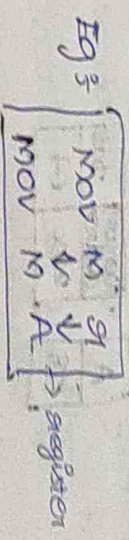 Eg :-
MOV M r
↓ ↓
MOV M A → register